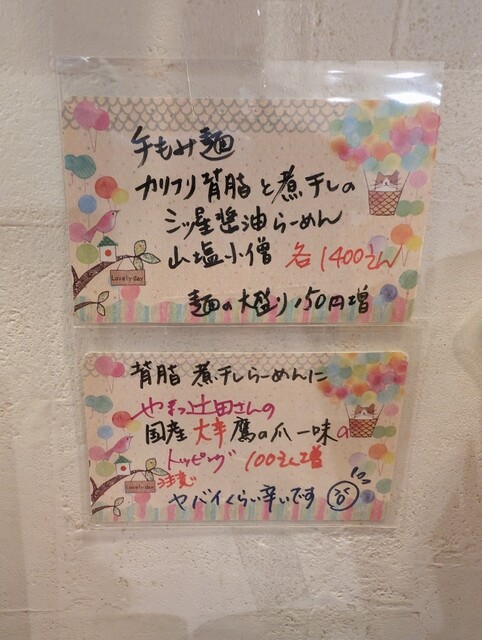 手もみ麺
カリフリ背脂と煮干しの
三ツ星醤油らーめん
山塩小僧 各1400えん
麺の大盛り150円増
Lovely day
背脂煮干しらーめんに
やまつ辻田さんの
国産大辛鷹の爪一味の
トッピング 100えん増
注意
ヤバイくらい辛いです
Lovely day